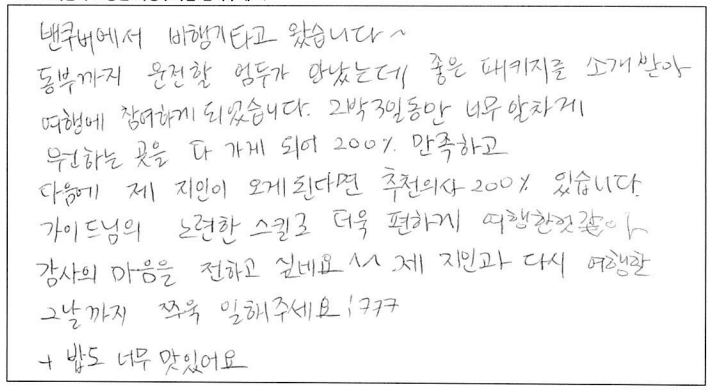 밴쿠버에서 비행기타고 왔습니다~
동부까지 운전할 엄두가 안났는데 좋은 패키지를 소개받아
여행에 참여하게 되었습니다. 2박3일동안 너무 알차게
우원하는 곳을 다 가게 되어 200% 만족하고
다음에 제 지인이 오게된다면 추천의사 200% 있습니다.
가이드님의 노련한 스킬로 더욱 편하게 여행한것 같아
감사의 마음을 전하고 싶네요 ^^. 제 지인과 다시 여행할
그날까지 쭈욱 일해주세요! ㅋㅋㅋ
+ 밥도 너무 맛있어요